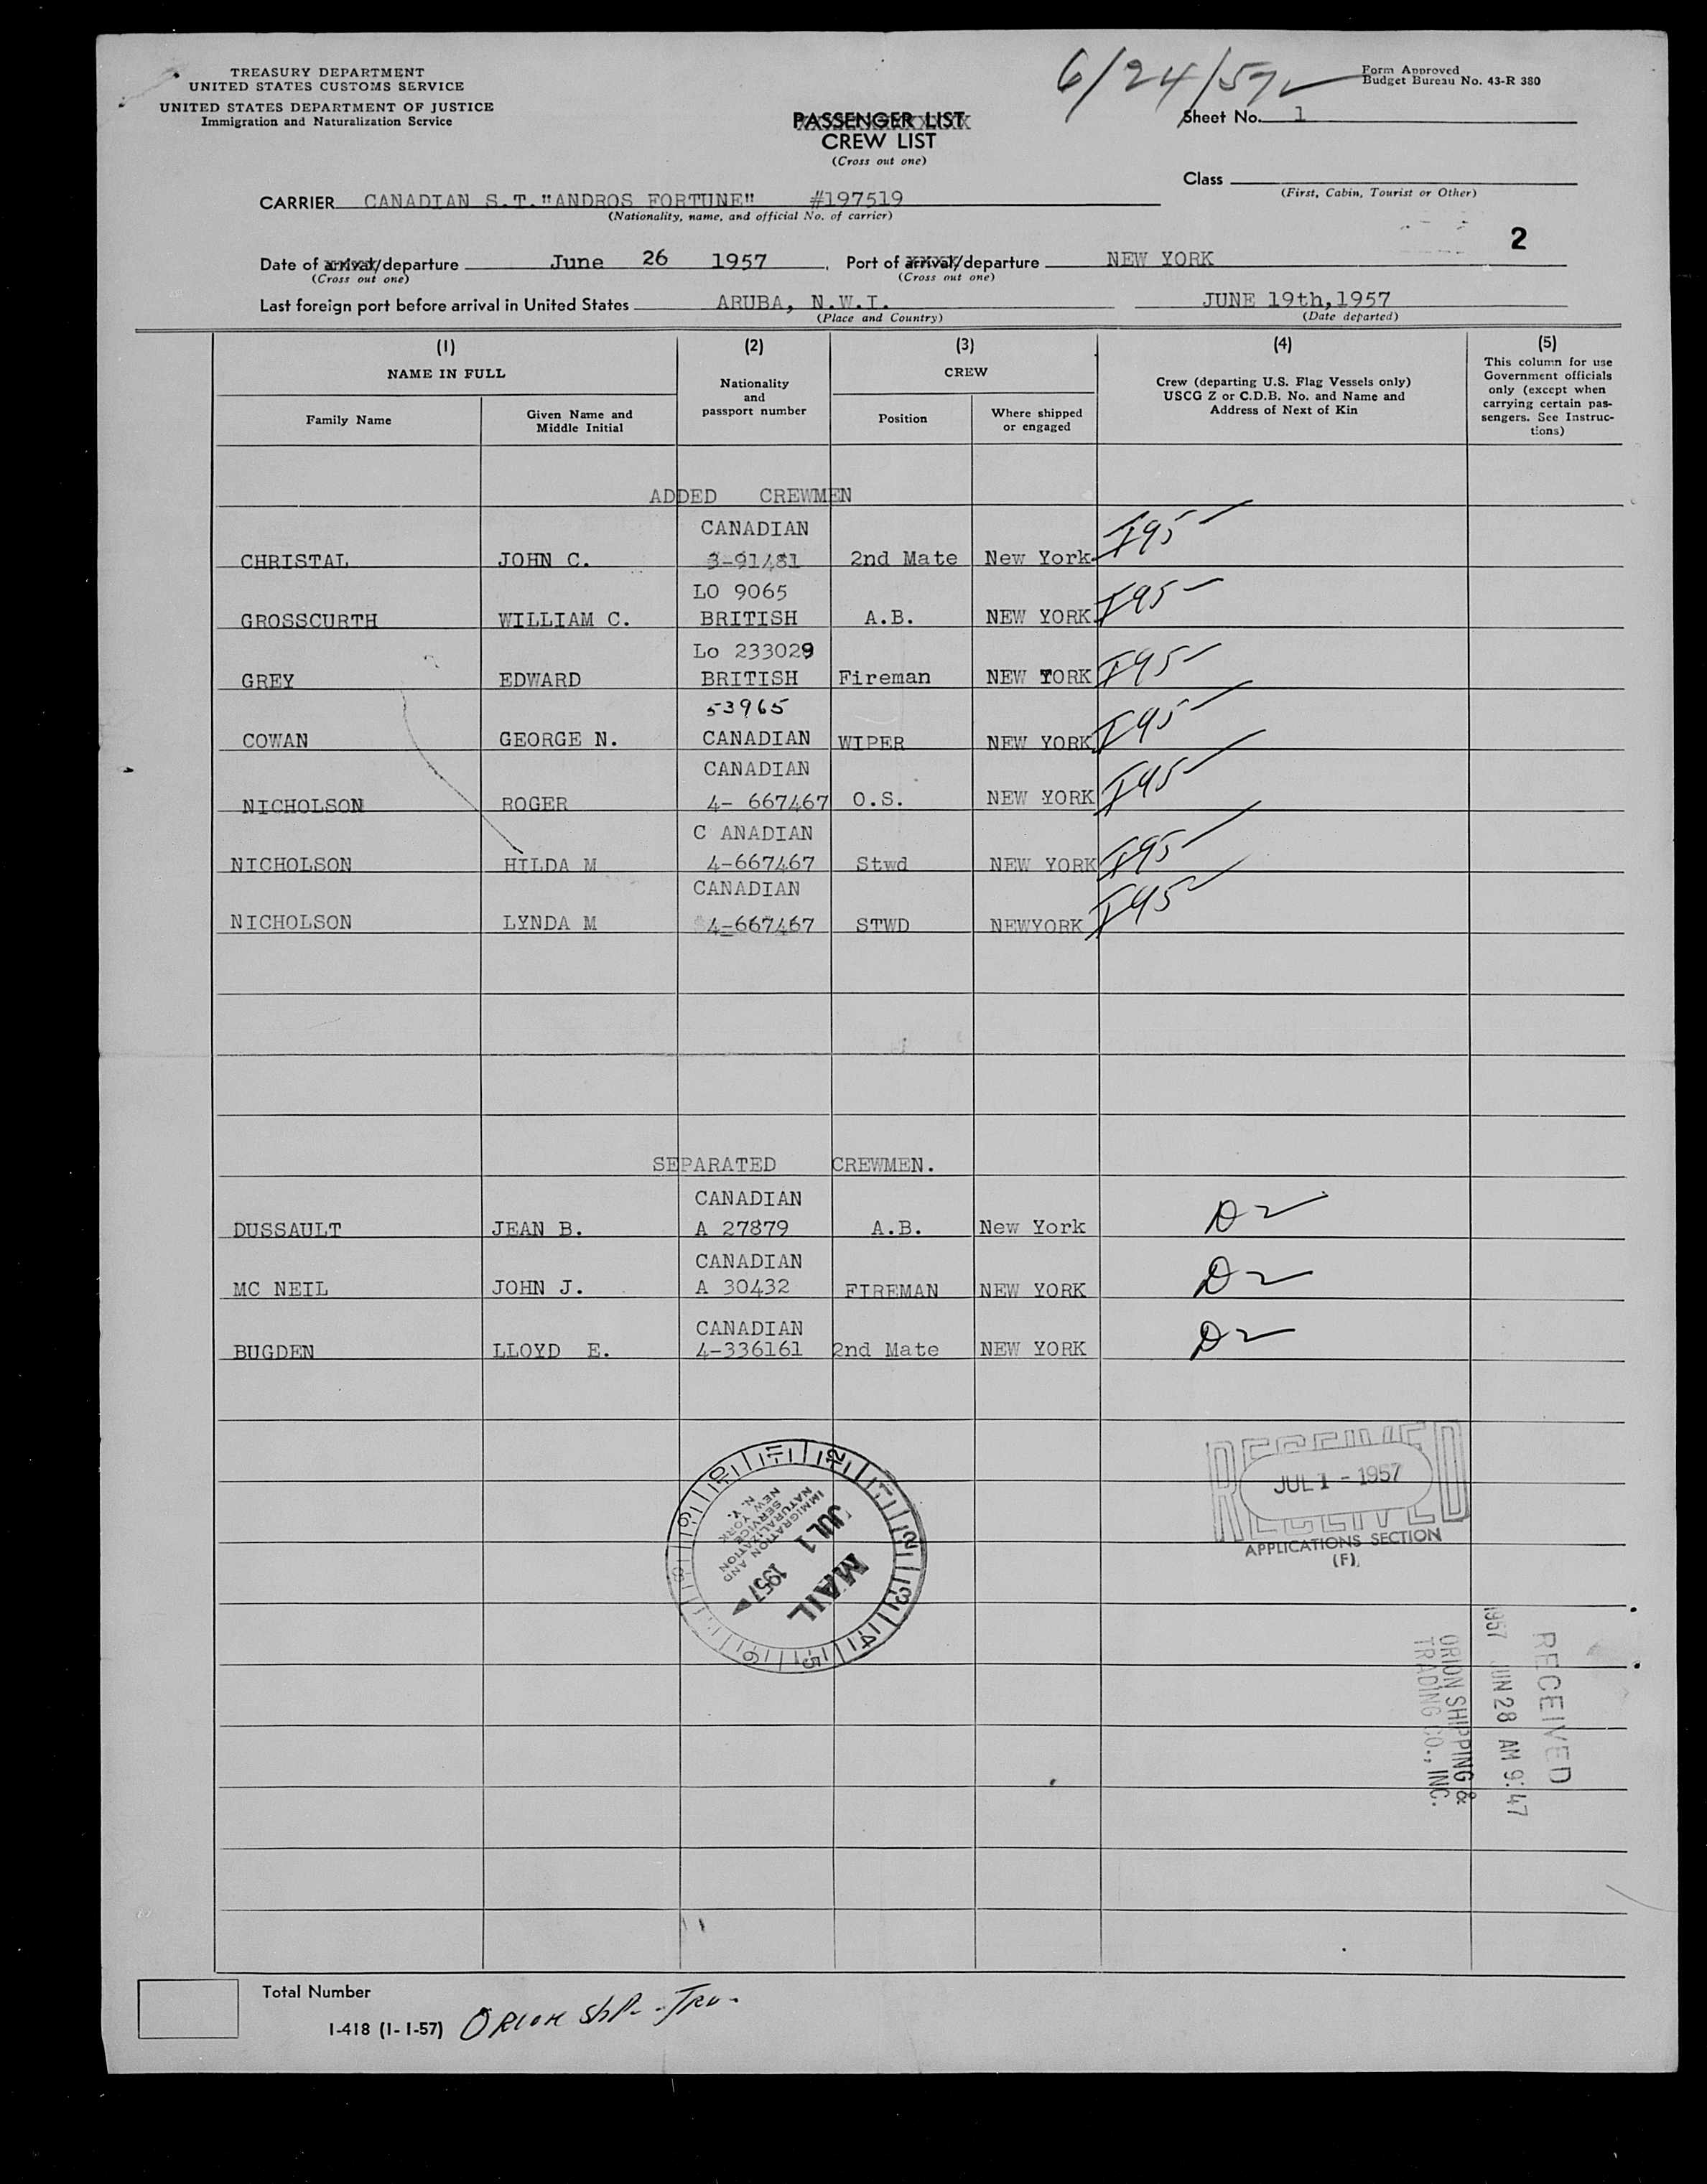 TREASURY DEPARTMENT
UNITED STATES CUSTOMS SERVICE
UNITED STATES DEPARTMENT OF JUSTICE
Immigration and Naturalization Service
6/24/57
Form Approved
Budget Bureau No. 43-R 380
PASSENGER LIST
CREW LIST
(Cross out one)
Sheet No. 1
Class
(First, Cabin, Tourist or Other)
CARRIER CANADIAN S.T."ANDROS FORTUNE" #197519
(Nationality, name, and official No. of carrier)
2
Date of arrival/departure June 26 1957, Port of arrival/departure NEW YORK
(Cross out one) (Cross out one)
Last foreign port before arrival in United States ARUBA, N.W.I. JUNE 19th,1957
(Place and Country) (Date departed)
(1) (2) (3) (4) (5)
NAME IN FULL
Family Name
Given Name and
Middle Initial
Nationality
and
passport number
CREW
Position
Where shipped
or engaged
Crew (departing U.S. Flag Vessels only)
USCG Z or C.D.B. No. and Name and
Address of Next of Kin
This column for use
Government officials
only (except when
carrying certain pas-
sengers. See Instruc-
tions)
ADDED CREWMEN
CANADIAN
CHRISTAL JOHN C. 3-91481 2nd Mate New York I95
LO 9065
GROSSCURTH WILLIAM C. BRITISH A.B. NEW YORK I95
Lo 233029
GREY EDWARD BRITISH Fireman NEW YORK I95
53965
COWAN GEORGE N. CANADIAN WIPER NEW YORK I95
CANADIAN
NICHOLSON ROGER 4- 667467 O.S. NEW YORK I95
C ANADIAN
NICHOLSON HILDA M 4-667467 Stwd NEW YORK I95
CANADIAN
NICHOLSON LYNDA M 4-667467 STWD NEWYORK I95
SEPARATED CREWMEN.
CANADIAN
DUSSAULT JEAN B. A 27879 A.B. New York D2
CANADIAN
MC NEIL JOHN J. A 30432 FIREMAN NEW YORK D2
CANADIAN
BUGDEN LLOYD E. 4-336161 2nd Mate NEW YORK D2
IMMIGRATION AND
NATURALIZATION
SERVICE
NEW YORK
N. Y.
JUL 1
1957
MAIL
12 1 2 3 4 5 6 8 9 10 11
RECEIVED
JUL 1 - 1957
APPLICATIONS SECTION
(F)
RECEIVED
1957 JUN 28 AM 9:47
ORION SHIPPING &
TRADING CO., INC.
Total Number
I-418 (1-1-57)
Orion Shp.